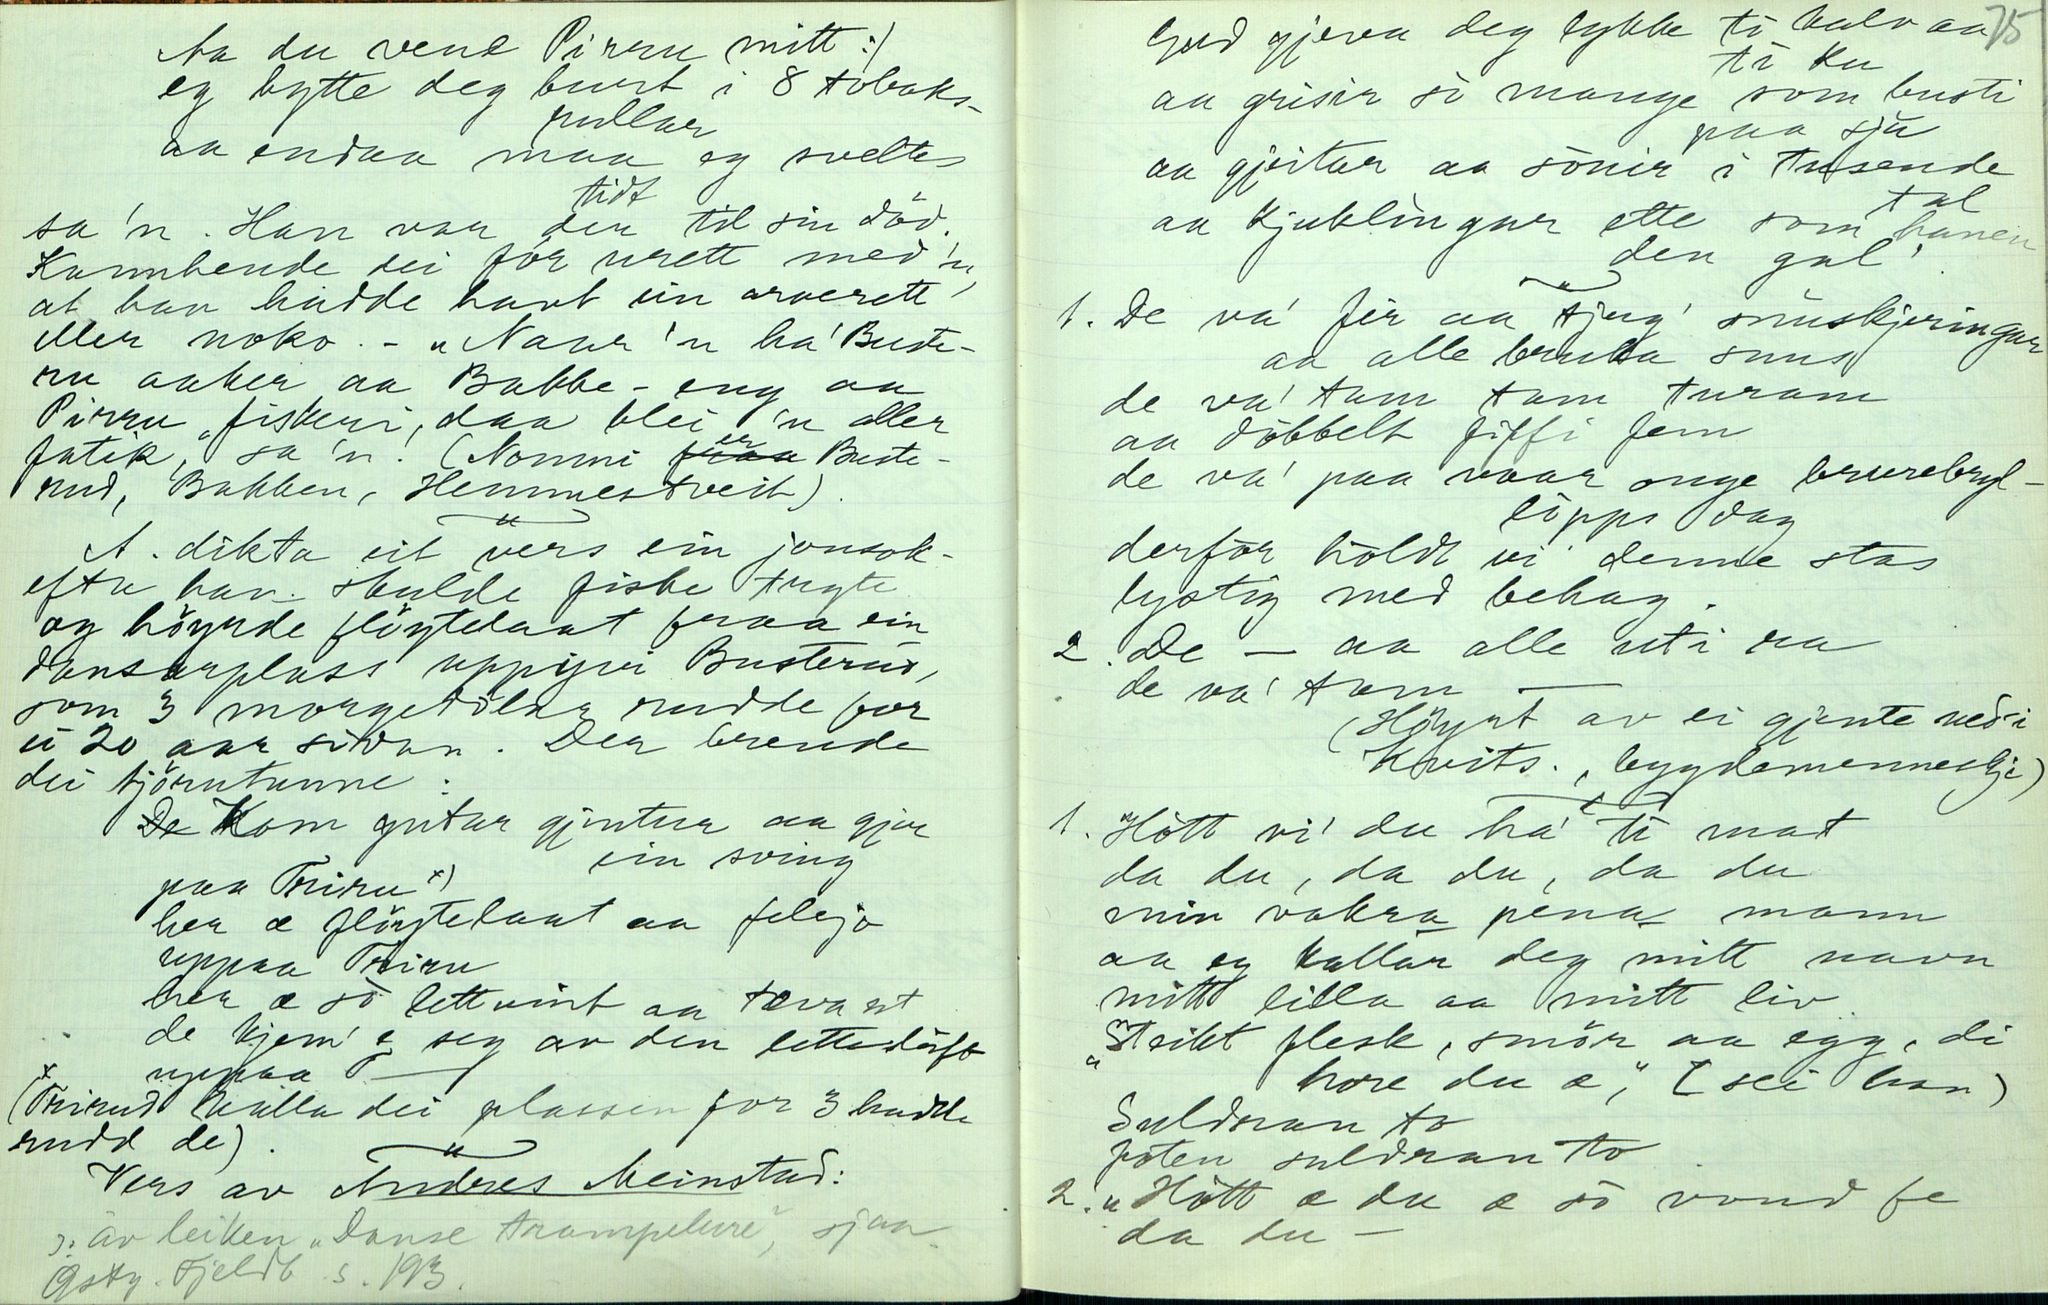 Aa du vene Pirru mitt :/
eg bytte deg burt i 8 tobaks-
rullar
aa endaa maa eg svelte
sa'n. Han var der tidt til sin död.
Kannhende dei fór urett med'n,
at han hadde havt ein arverett
eller noko. - "Naar'n ha' Buste-
ru aaker aa Bakke-eng aa
Pirru "fiskeri, daa blei 'n aller
fatik," sa'n. (Nommi er Buste-
rud, Bakken, Hemmestveit).
A. dikta eit vers ein jonsok-
efta han skulde fiske
og höyrde flöytelaat fraa ein
dansarplass uppiyvi Busterud,
som 3 rudde for
ei 20 aar sidan. Der brende
dei tjörutunne:
Kom gutar gjentur aa gjer
ein sving
paa Triru x)
her æ flöytelaat aa felejo
uppaa Triru
her æ so lettvint aa
de kjem' seg av den
uppaa T—
x (Trirud kalla dei plassen for 3 hadde
rudd de).
Vers av Andres Meinstad:
ɔ: av leiken "Danse trampelure", sjaa
Østg. Fjeldb s. 193.
75
Gud gjeva deg lykke ti kalv aa
ti ku
aa grisir so mange som busti
paa sju
aa gjeitar aa sönir i tusende
tal
aa kjuklingar ette som hanen
den gal'.
1. De va' fir aa tjug' snuskjeringar
aa alle bruka snus
de va' tam tam turam
aa döbbelt fiffi fem
de va' paa vaar onge brurebryl-
löpps dag
derför höldt vi denne stas
lystig med behag.
2. De — aa alle ut i ra
de va' tam —
(Höyrt av ei gjente ned i
Kvits., bygdemenneskje)
1. "Hött vi' du ha' ti mat
da du, da du, da du
min vakra pena mann
aa eg kallar deg mitt navn
mitt lilla aa mitt liv
"Steikt flesk, smör aa egg, di
hore du æ", (sei han)
Suldran to
foten suldran to
2. "Hött æ du æ so vond fe
da du —